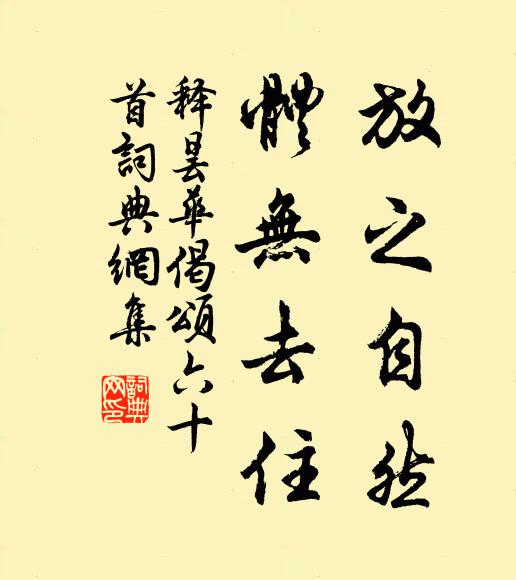 放之自然
體無去住
释曇華偈頌六十
首詞典網集
詞典
网印